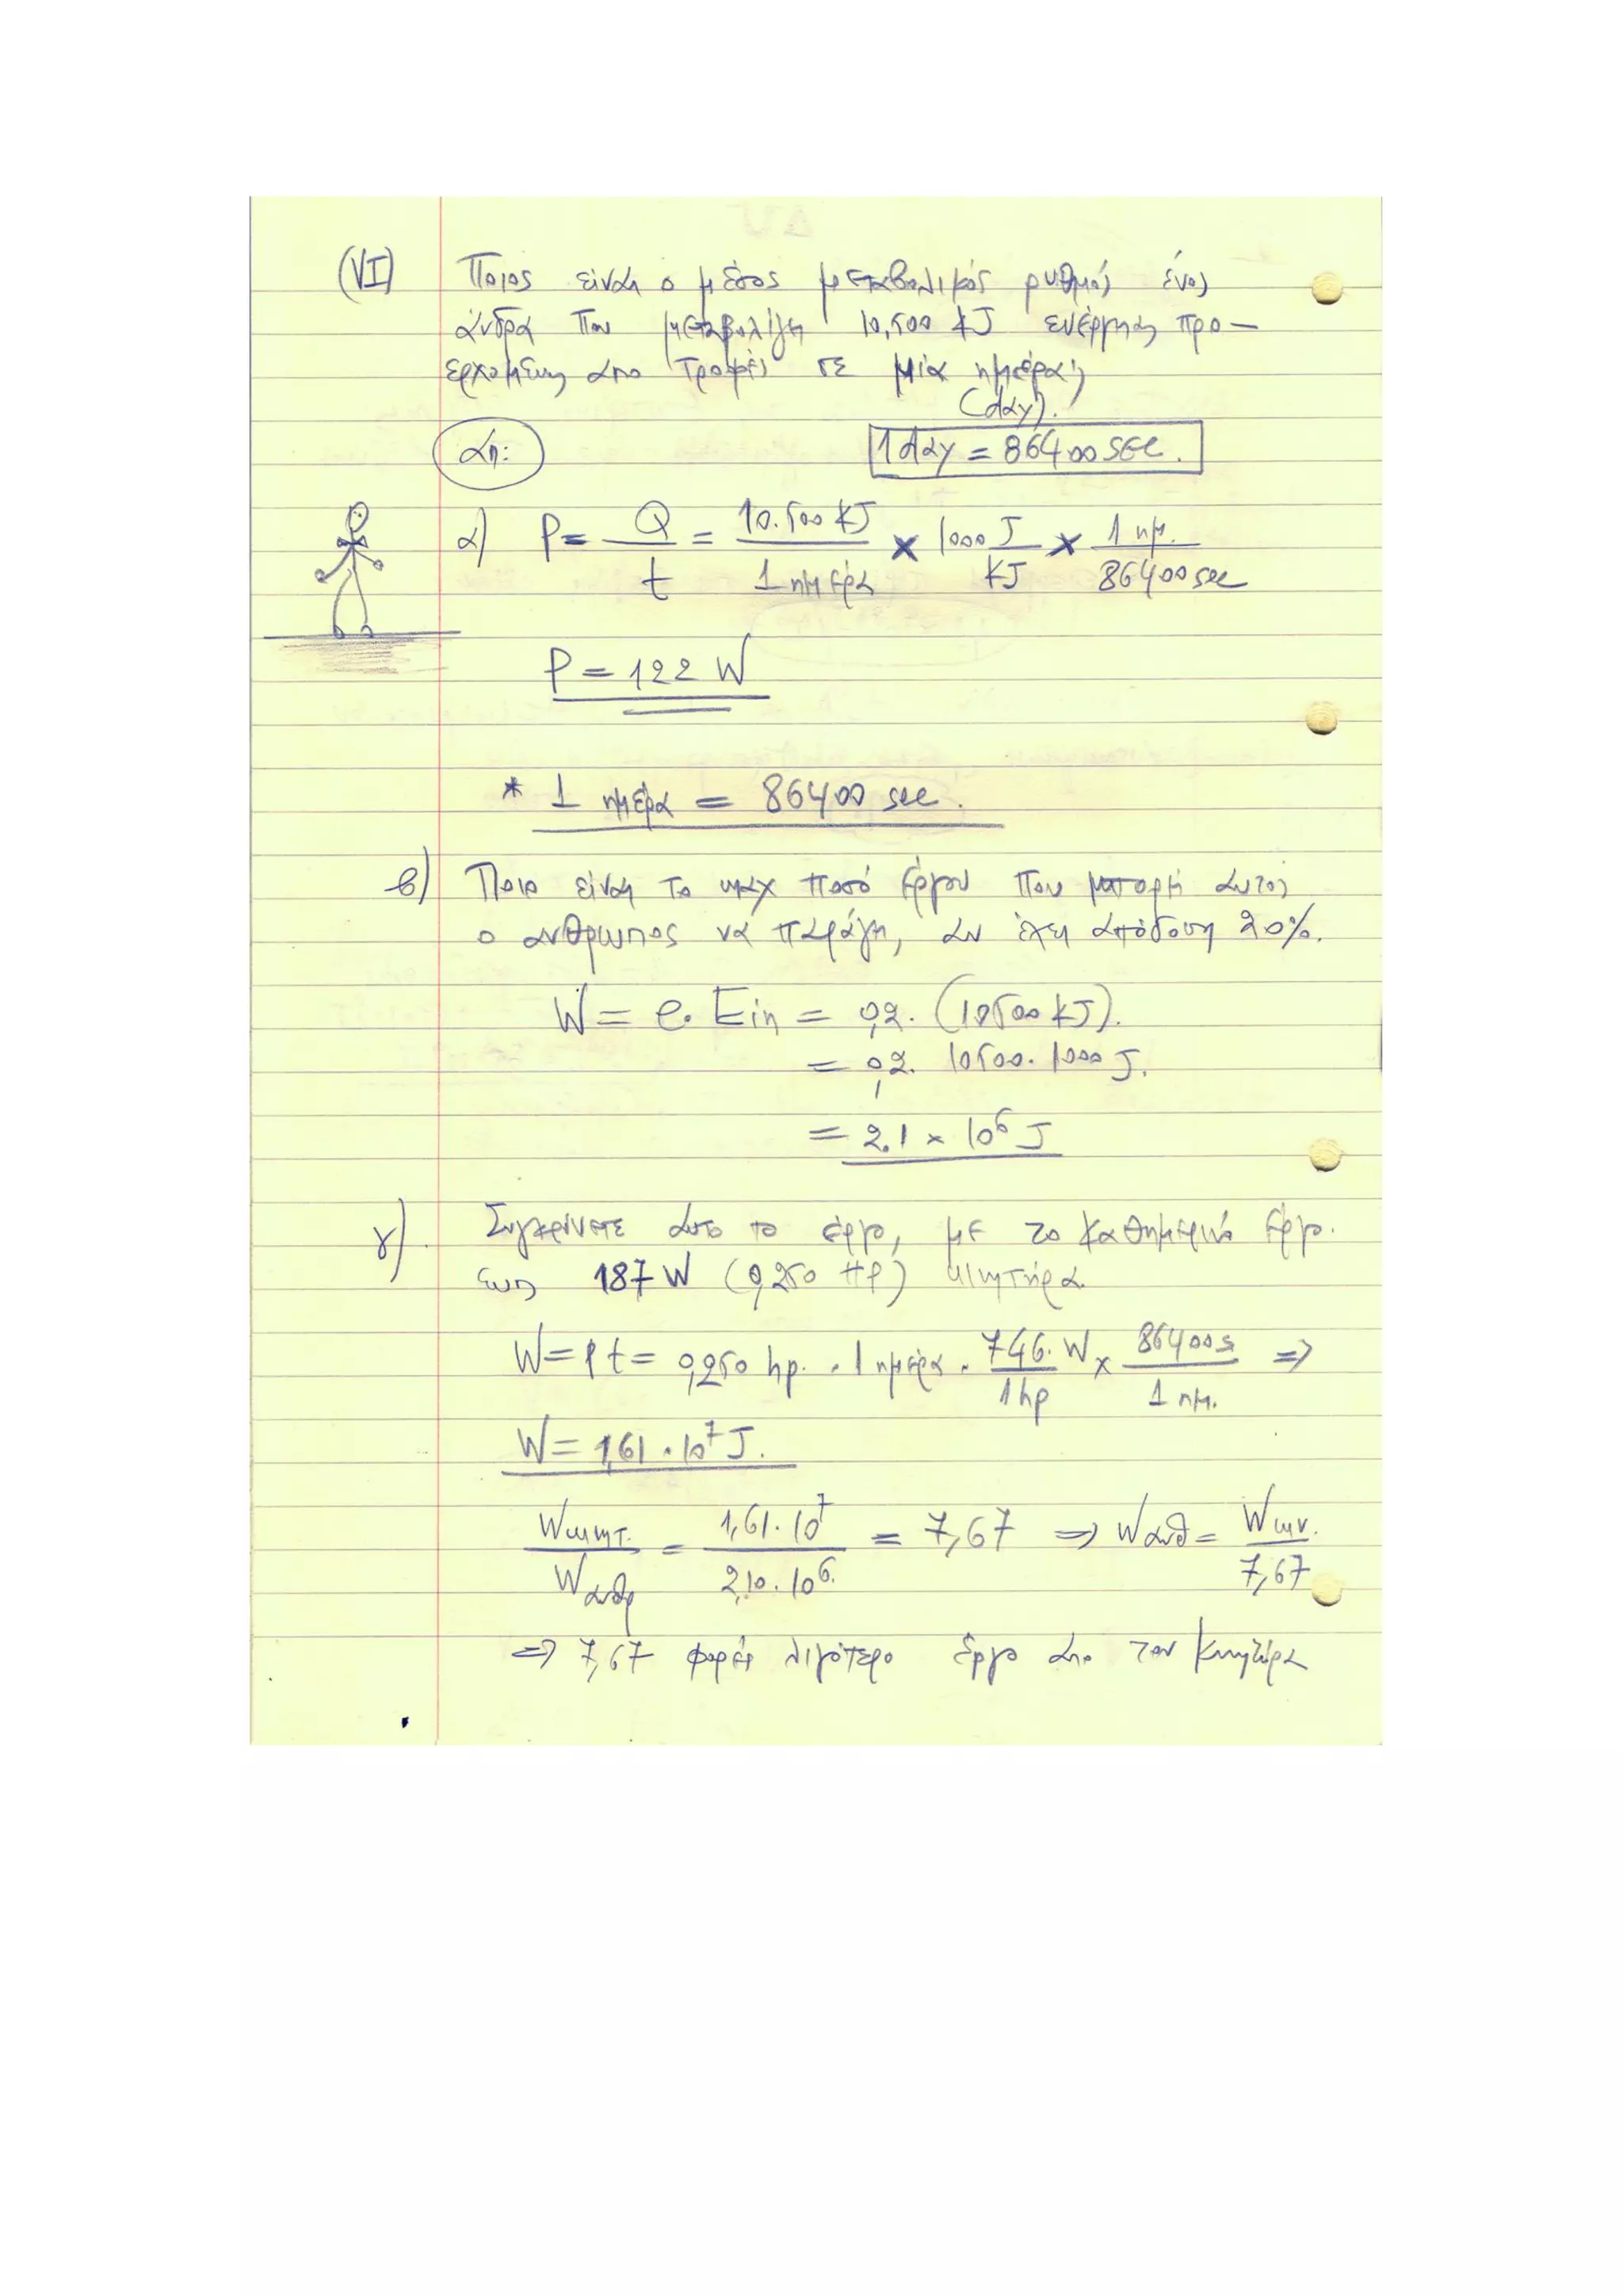 (VI) Ποιος είναι ο μέσος μεταβολικός ρυθμός ένος
άνδρα που μεταβολίζει 10,500 kJ ενέργειας προ-
ερχομένης απο τροφές σε μία ημέρα;
(day).
απ:
1 day = 86400 sec.
α) P = Q/t = 10.500 kJ / 1 ημέρα × 1000 J/kJ × 1 ημ. / 86400 sec
P = 122 W
* 1 ημέρα = 86400 sec.
β) Ποιο είναι το max ποσό έργου που μπορεί αυτος
ο ανθρωπος νά παράγει, αν έχει απόδοση 20%.
W = e. Ein = 0,2. (10500 kJ).
= 0,2. 10500. 1000 J.
= 2.1 × 10⁶ J
γ). Συγκρίνατε αυτο το έργο, με το καθημερινό έργο.
ενος 187 W (0,250 HP) κινητήρα
W = P t = 0,250 hp. . 1 ημέρα . 746. W / 1 hp × 86400 s / 1 ημ. ⇒
W = 1,61 . 10⁷ J.
Wκινητ. / Wανθρ = 1,61. 10⁷ / 2,10. 10⁶. = 7,67 ⇒ Wανθ = Wκιν. / 7,67
⇒ 7,67 φορές λιγότερο έργο απο τον κινητήρα